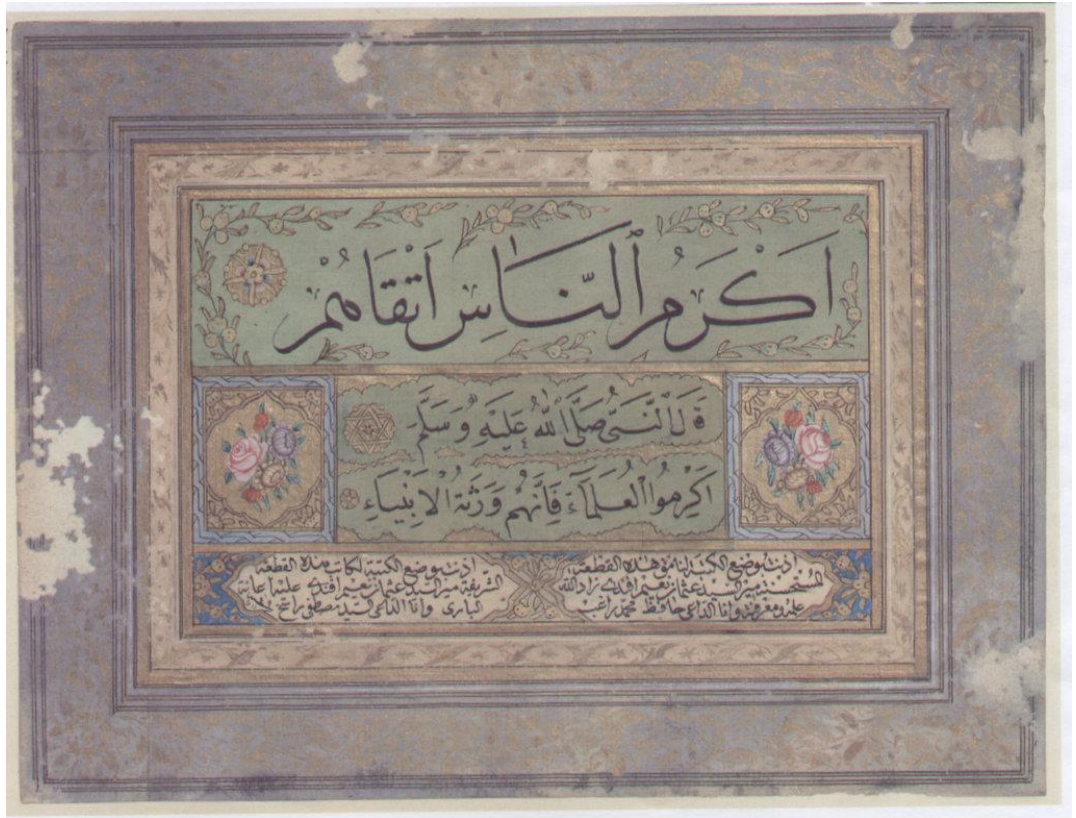 اَكْرَمُ ٱلنَّاسِ اَتْقَاهُمْ
قَالَ ٱلنَّبِىُّ صَلَّى ٱللّٰهُ عَلَيْهِ وَسَلَّمَ
اَكْرِمُوا ٱلْعُلَمَاءَ فَاِنَّهُمْ وَرَثَةُ ٱلْاَنْبِيَاءِ
اذنت بوضع الكتبة لنامق هذه القطعة
المستحسنة مير السيد عثمان نعيم افندى زاد الله
علمه ومعرفته وانا الداعى حافظ محمد راغب
اذنت بوضع الكتبة لكاتب هذه القطعة
الشريفة مير السيد عثمان نعيم افندى
البارى وانا الداعى السيد مصطفى راسخ